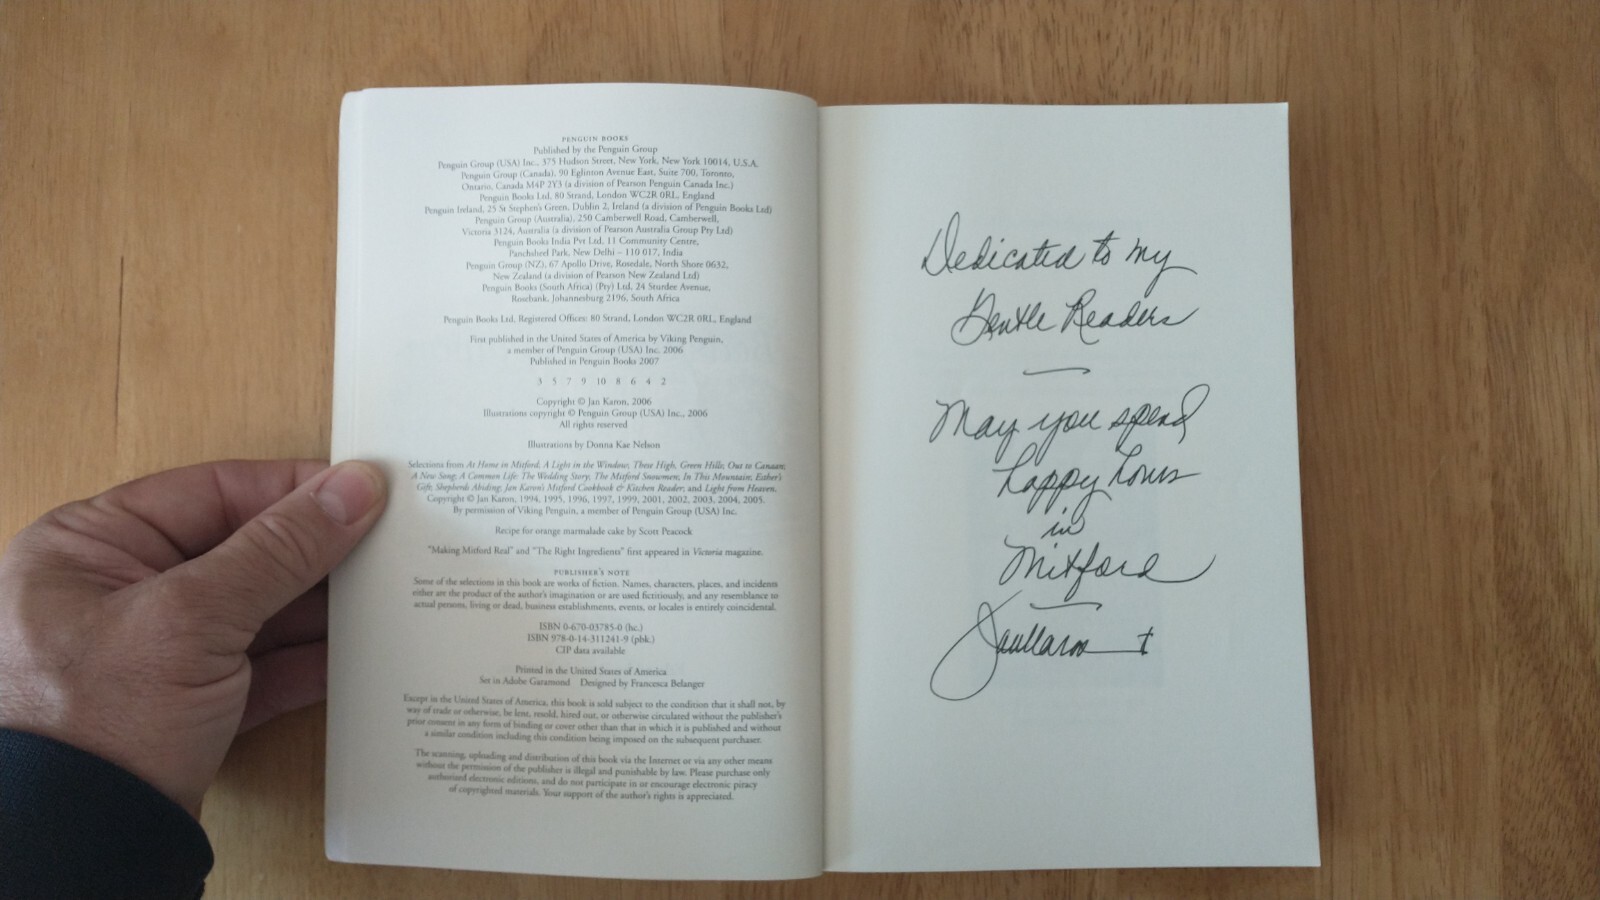 PENGUIN BOOKS
Published by the Penguin Group
Penguin Group (USA) Inc., 375 Hudson Street, New York, New York 10014, U.S.A.
Penguin Group (Canada), 90 Eglinton Avenue East, Suite 700, Toronto,
Ontario, Canada M4P 2Y3 (a division of Pearson Penguin Canada Inc.)
Penguin Books Ltd, 80 Strand, London WC2R 0RL, England
Penguin Ireland, 25 St Stephen's Green, Dublin 2, Ireland (a division of Penguin Books Ltd)
Penguin Group (Australia), 250 Camberwell Road, Camberwell,
Victoria 3124, Australia (a division of Pearson Australia Group Pty Ltd)
Penguin Books India Pvt Ltd, 11 Community Centre,
Panchsheel Park, New Delhi – 110 017, India
Penguin Group (NZ), 67 Apollo Drive, Rosedale, North Shore 0632,
New Zealand (a division of Pearson New Zealand Ltd)
Penguin Books (South Africa) (Pty) Ltd, 24 Sturdee Avenue,
Rosebank, Johannesburg 2196, South Africa
Penguin Books Ltd, Registered Offices: 80 Strand, London WC2R 0RL, England
First published in the United States of America by Viking Penguin,
a member of Penguin Group (USA) Inc. 2006
Published in Penguin Books 2007
3 5 7 9 10 8 6 4 2
Copyright © Jan Karon, 2006
Illustrations copyright © Penguin Group (USA) Inc., 2006
All rights reserved
Illustrations by Donna Kae Nelson
Selections from At Home in Mitford; A Light in the Window; These High, Green Hills; Out to Canaan;
A New Song; A Common Life: The Wedding Story; The Mitford Snowmen; In This Mountain; Esther's
Gift; Shepherds Abiding; Jan Karon's Mitford Cookbook & Kitchen Reader; and Light from Heaven.
Copyright © Jan Karon, 1994, 1995, 1996, 1997, 1999, 2001, 2002, 2003, 2004, 2005.
By permission of Viking Penguin, a member of Penguin Group (USA) Inc.
Recipe for orange marmalade cake by Scott Peacock
"Making Mitford Real" and "The Right Ingredients" first appeared in Victoria magazine.
PUBLISHER'S NOTE
Some of the selections in this book are works of fiction. Names, characters, places, and incidents
either are the product of the author's imagination or are used fictitiously, and any resemblance to
actual persons, living or dead, business establishments, events, or locales is entirely coincidental.
ISBN 0-670-03785-0 (hc.)
ISBN 978-0-14-311241-9 (pbk.)
CIP data available
Printed in the United States of America
Set in Adobe Garamond Designed by Francesca Belanger
Except in the United States of America, this book is sold subject to the condition that it shall not, by
way of trade or otherwise, be lent, resold, hired out, or otherwise circulated without the publisher's
prior consent in any form of binding or cover other than that in which it is published and without
a similar condition including this condition being imposed on the subsequent purchaser.
The scanning, uploading and distribution of this book via the Internet or via any other means
without the permission of the publisher is illegal and punishable by law. Please purchase only
authorized electronic editions, and do not participate in or encourage electronic piracy
of copyrighted materials. Your support of the author's rights is appreciated.
Dedicated to my
Gentle Readers
May you spend
happy hours
in
Mitford
Jan Karon